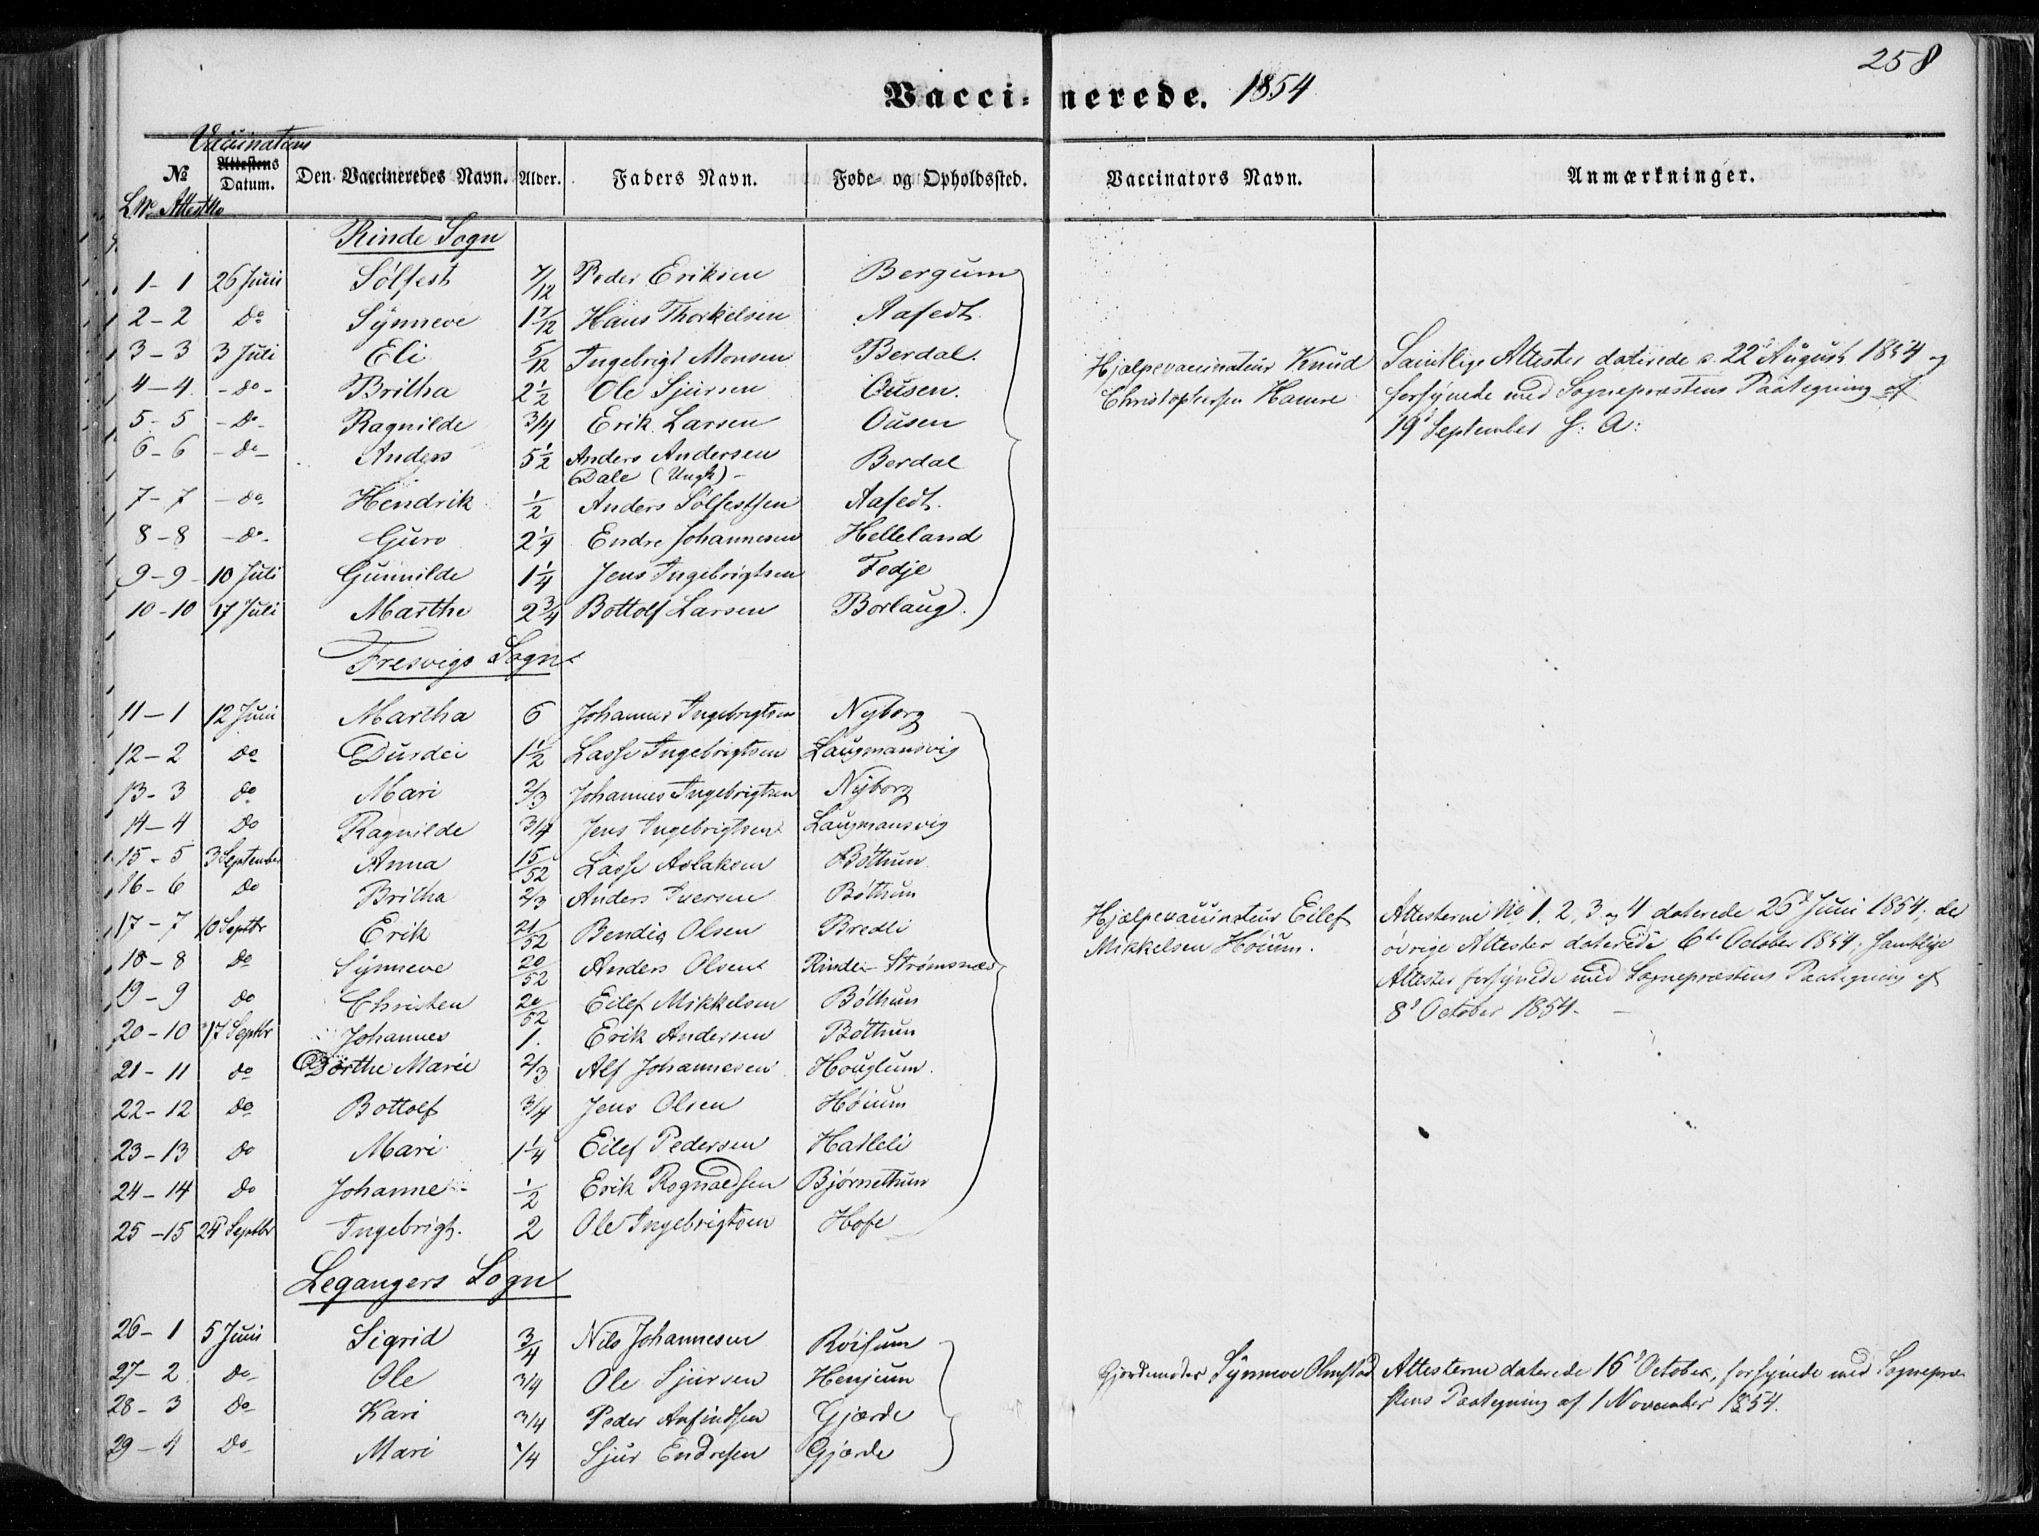 258
Vaccinerede. 1854
Vaccinations
№ Attestens Datum. Den Vaccineredes Navn. Alder. Faders Navn. Føde- og Opholdssted. Vaccinators Navn. Anmærkninger.
L.Nr. Attest No
Rinde Sogn
1-1 26 Juni Sølfest 7/12 Peder Eriksen Bergum
2-2 do Synneve 1 7/12 Hans Thorkelsen Aafedt.
3-3 3 Juli Eli 5/12 Ingebrigt Monsen Berdal.
4-4 -do- Britha 2 1/2 Ole Sjursen Ousen.
5-5 -do- Ragnilde 3/4 Erik Larsen Ousen
6-6 -do- Anders 5 1/2 Anders Andersen Berdal
Dale (Ungk) -
7-7 -do- Hendrik 1/2 Anders Sølfestsen Aafedt.
8-8 -do- Guro 2 1/4 Endre Johannesen Helleland
9-9 10 Juli Gunnilde 1 1/4 Jens Ingebrigtsen Fedje
10-10 17 Juli Marthe 2 3/4 Bottolf Larsen Borlaug.
Hjælpevaccinateur Knud
Christophersen Hamre
Samtlige Attester daterede d. 22d August 1854 og
forsynede med Sognepræstens Paategning af
19d September s: A:
Fresvigs Sogn
11-1 12 Juni Martha 6 Johannes Ingebrigtsen Nyborg
12-2 do Durdei 1 1/2 Lasse Ingebrigtsen Laugmansvig
13-3 do Mari 2/3 Johannes Ingebrigtsen Nyborg
14-4 do Ragnilde 3/4 Jens Ingebrigtsen Laugmansvig
15-5 3 September Anna 15/52 Lasse Aslaksen Bøthun
16-6 do Britha 2/3 Anders Iversen Bøthun
17-7 10 Septbr Erik 21/52 Bendix Olsen Bredli
18-8 do Synneve 20/52 Anders Olsen Rinde- Strømsnæs
19-9 do Christen 20/52 Eilef Mikkelsen Bøthun
20-10 17 Septbr Johannes 1. Erik Andersen Bøthun
21-11 do Dorthe Marie 2/3 Alf Johannesen Houglum.
22-12 do Bottolf 3/4 Jens Olsen Høium
23-13 do Mari 1 1/4 Eilef Pedersen Hatleli
24-14 do Johanne 1/2 Erik Rognaldsen Bjørnethun
25-15 24 Septbr Ingebrigt. 2 Ole Ingebrigtsen Hofe
Hjælpevaccinateur Eilef
Mikkelsen Høium.
Attesterne No 1, 2, 3 og 4 daterede 25d Juni 1854; de
øvrige Attester daterede 6te October 1854. Samtlige
Attester forsynede med Sognepræstens Paategning af
8d October 1854.
Legangers Sogn
26-1 5 Juni Sigrid 3/4 Nils Johannesen Røisum
27-2 do Ole 3/4 Ole Sjursen Henjum
28-3 do Kari 3/4 Peder Anfindsen Gjærde
29-4 do Mari 1/4 Sjur Endresen Gjærde
Gjordemoder Synneve Olmstad
Attesterne daterede 16d October, forsynede med Sognepræ-
stens Paategning af 1 November 1854.